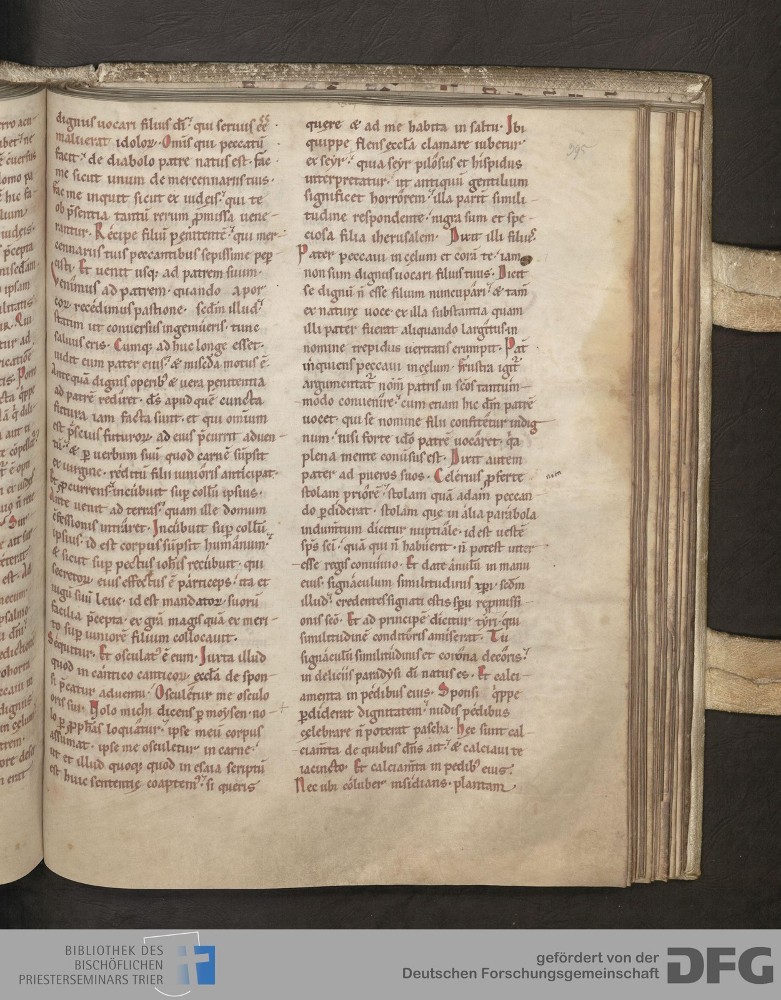 dignus uocari filius di᷎ qui seruus ee᷎
maluerat idolor᷎. Omis᷎ qui peccatu᷎
facit᷎ de diabolo patre natus est. fac
me sicut unum de mercennariis tuis.
fac me inquit sicut ex iudeis᷎ qui te
ob p᷎sentia tantu᷎ rerum p᷎missa uene-
rantur. Recipe filiu᷎ p᷎enitente᷎ qui mer-
cennariis tuis peccantibus sepissime pep
cisti. Et uenit usq; ad patrem suum.
Venimus ad patrem. quando a por
cor᷎ recedimus pastione. sedm᷎ illud᷎
statim ut conuersus ingemueris. tunc
saluus eris. Cumq; ad huc longe esset.
uidit eum pater eius᷎ & miscda᷎ motus e᷎.
Ante qua᷎ dignis operib᷎ & uera penitentia
ad patre᷎ rediret. ds᷎ apud que᷎ cuncta
futura iam facta sunt. et qui omium
est p᷎scius futuror᷎. ad eius p᷎currit aduen-
tu᷎. & p᷎ uerbum suu᷎ quod carne᷎ su᷎psit
ex uirgine. reditu᷎ filii iunioris anticipat.
Et p᷎currens incubuit sup᷎ collu᷎ ipsius.
Ante uenit ad terras᷎ quam ille domum
c᷎fessionis intraret. Incubuit sup᷎ collu᷎
ipsius. id est corpus su᷎psit humanum᷎.
& sicut sup᷎ pectus ioh᷎is recubuit. qui
secretor᷎ eius effectus e᷎ particeps. ita et
iugu᷎ suu᷎ leue. id est mandator᷎ suoru᷎
facilia p᷎cepta. ex gra᷎ magis qua᷎ ex meri-
to sup᷎ iuniore᷎ filium collocauit.
Sequitur. Et osculat᷎ e᷎ eum. Iuxta illud
quod in cantico canticor᷎. eccla᷎ de spon-
si p᷎catur aduentu. Osculetur me osculo
oris sui. Nolo michi dicens p᷎ moysen. no-
lo p᷎ p᷎ph᷎as loquatur. ipse meu᷎ corpus
assumat. ipse me osculetur in carne᷎.
ut et illud quoq; quod in esaia scriptu᷎
est huic sententie coaptem᷎ si queris
quere & ad me habita in saltu. Ibi
quippe flens eccla᷎ clamare iubetur
ex seyr. quia seyr pilosus et hispidus
interpretatur. ut antiquu᷎ gentilium
significet horrorem᷎. illa parit᷎ simili-
tudine respondente. nigra sum et spe-
ciosa filia iherusalem. Dixit illi filius᷎.
Pater peccaui in celum et cora᷎ te. iam
non sum dignus uocari filius tuus. Dicit
se dignu᷎ n᷎ esse filium nuncupari. & tam᷎
ex nature uoce. ex illa substantia quam
illi pater fuerat aliquando largitus. in
nomine trepidus ueritatis erumpit. Pat᷎
inquiens peccaui in celum. frustra igit᷎
argumentat᷎ nom᷎ patris in scos᷎ tantum-
modo conuenire. cum etiam hic dm᷎ patre᷎
uocet. qui se nomine filii confitetur indig
num. nisi forte ido᷎ patre᷎ uocaret. qa᷎
plena mente conuersus est. Dixit autem
pater ad pueros suos. Celerius p᷎ferte
stolam priore᷎. stolam qua᷎ adam peccan-
do p᷎diderat. stolam que in alia parabola
indumtum᷎ dicitur nuptiale. id est ueste᷎
sps᷎ sci᷎. qua᷎ qui n᷎ habuerit. n᷎ potest inter
esse regis conuiuio. Et date anulu᷎ in manu
eius. signaculum similitudinis xpi᷎. sedm᷎
illud᷎ credentes signati estis spu᷎ repmissi-
onis sco᷎. Et ad principe᷎ dicitur tyri. qui
similitudine᷎ conditoris amiserat. Tu
signaculu᷎ similitudinis et corona decoris.
in deliciis paradysi di᷎ natus es. Et calci-
amenta in pedibus eius. Sponsi q᷎ppe
p᷎diderat dignitatem. nudis pedibus
celebrare n᷎ poterat pascha. Hec sunt cal-
ciam᷎ta de quibus dns᷎ ait. & calciaui te
iacincto. Et calciam᷎ta in pedib᷎ eius.
Nec ubi coluber insidians. plantam
295
BIBLIOTHEK DES
BISCHÖFLICHEN
PRIESTERSEMINARS TRIER
gefördert von der
Deutschen Forschungsgemeinschaft
DFG